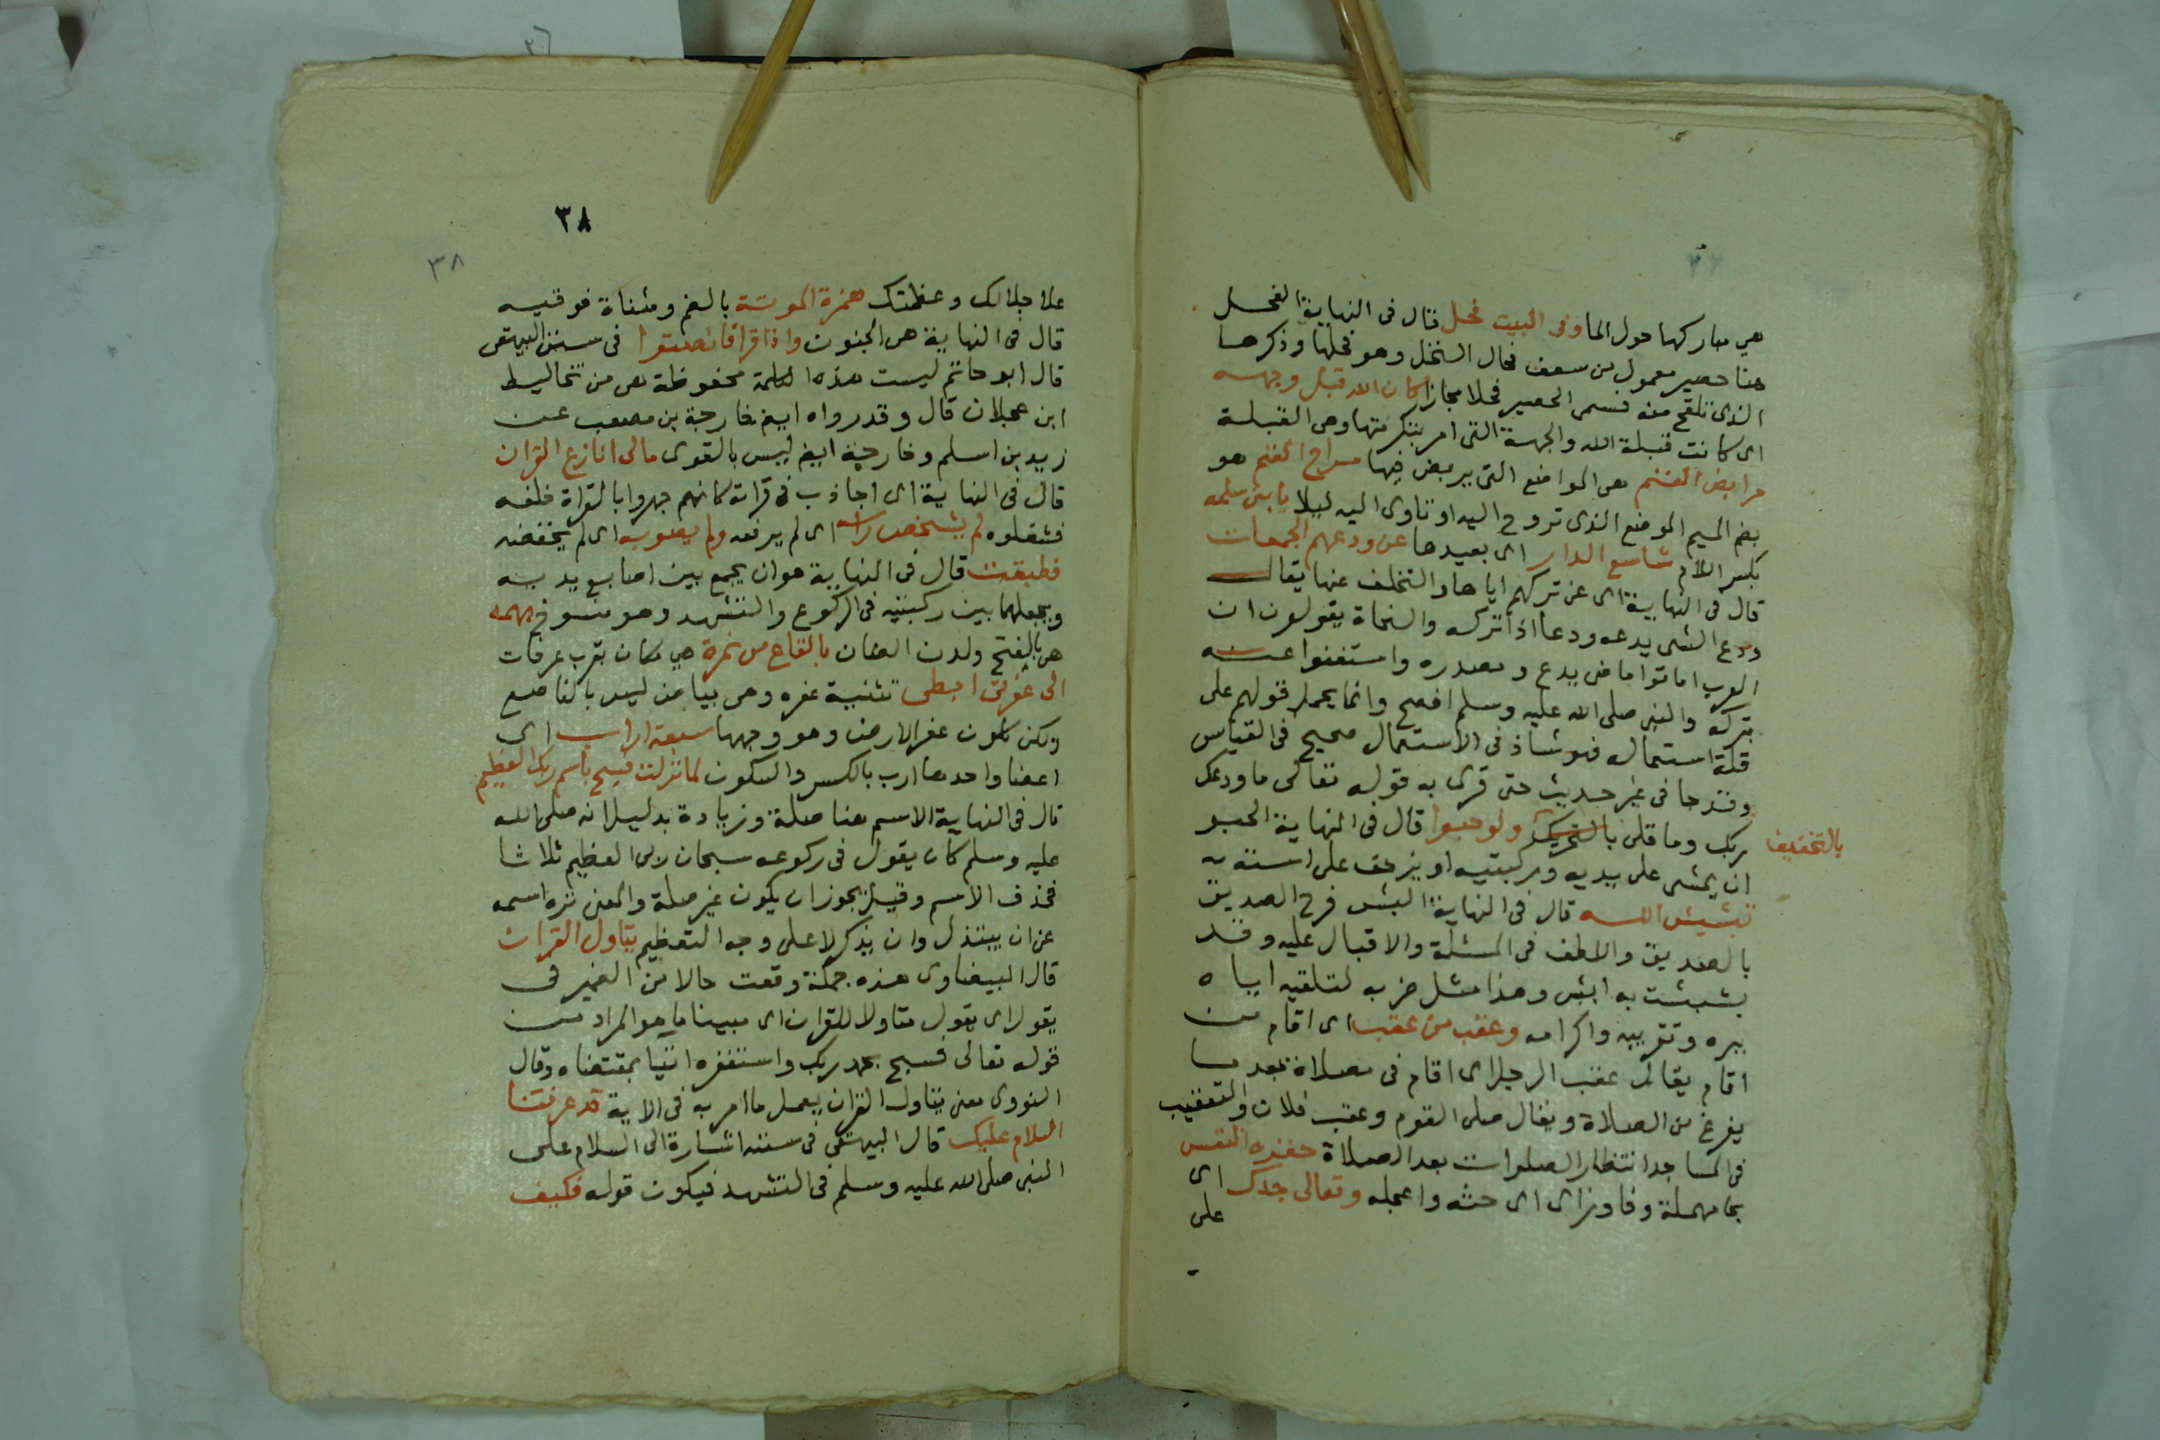 هي مباركها حول الماء وفى البيت فحل قال فى النهاية الفحل
هنا حصير معمول من سعف فحال النخل وهو فحلها وذكرها
الذى تلقح منه فسمى الحصير فحلا مجازا كان الله قبل وجهه
اى كانت قبلة الله والجهة التى امر بتكرمتها وهى القبلة
مرابض الغنم هى المواضع التى يربض فيها مراح الغنم هو
بضم الميم الموضع الذى تروح اليه او تاوى اليه ليلا يا بنى سلمه
بكسر اللام شاسع الدار اى بعيدها عن ودعهم الجمعات
قال فى النهاية اى عن تركهم اياها والتخلف عنها يقال
ودع الشى يدعه ودعا اذا تركه والنحاة يقولون ان
العرب اماتوا ماضى يدع ومصدره واستغنوا عنه
بترك والنبى صلى الله عليه وسلم افصح وانما يحمل قولهم على
قلة استعماله فهو شاذ فى الاستعمال صحيح فى القياس
وقد جا فى غير حديث حتى قرى به قوله تعالى ما ودعك
ربك وما قلى بالتحريك ولو حبوا قال فى النهاية الحبو
بالتخفيف
ان يمشى على يديه وركبتيه او يزحف على استه
تبشبش الله قال فى النهاية البش فرح الصديق
بالصديق واللطف فى المسئلة والاقبال عليه وقد
بشبشت به ابش وهذا مثل ضربه لتلقيه اياه
ببره وتقريبه واكرامه وعقب من عقب اى اقام من
اقام يقال عقب الرجل اى اقام فى مصلاه بعد ما
يفرغ من الصلاة ويقال صلى القوم وعقب فلان والتعقيب
فى المساجد انتظار الصلوات بعد الصلاة حفزه النفس
بحا مهملة وفا وزاى اى حثه واعجله وتعالى جدك اى
على
٣٨
٣٨
علا جلالك وعظمتك همزة الموتة بالضم ومثناة فوقيه
قال فى النهاية هى الجنون واذا قرا فانصتوا فى سنن البيهقى
قال ابو حاتم ليست هذه الكلمة محفوظة هى من تخاليط
ابن عجلان قال وقد رواه ايضا خارجة بن مصعب عن
زيد بن اسلم وخارجة ايضا ليس بالقوى مالى انازع القران
قال فى النهاية اى اجاذب فى قراته كانهم جهروا بالقراة خلفه
فشغلوه لم يشخص راسه اى لم يرفعه ولم يصوبه اى لم يخفضه
فطبقت قال فى النهاية هو ان يجمع بين اصابع يديه
ويجعلهما بين ركبتيه فى الركوع والتشهد وهو منسوخ بهمه
هى بالفتح ولدت الضان بالقاع من نمرة هي مكان بقرب عرفات
الى عفرتى ابطى تثنية عفره وهى بياض ليس بالناصع
ولكن كلون عفر الارض وهو وجهها سبعة اراب اى
اعضا واحدها ارب بالكسر والسكون لما نزلت فسبح باسم ربك العظيم
قال فى النهاية الاسم هنا صلة وزيادة بدليل انه صلى الله
عليه وسلم كان يقول فى ركوعه سبحان ربى العظيم ثلاثا
فحذف الاسم وقيل يجوز ان يكون غير صلة والمعنى نزه اسمه
عن ان يبتذل وان يذكر لا على وجه التعظيم يتاول القران
قال البيضاوى هذه جملة وقعت حالا من الضمير فى
يقول اى يقول متاولا للقران اى مبينا ما هو المراد من
قوله تعالى فسبح بحمد ربك واستغفره اتيا بمقتضاه وقال
النووى معنى يتاول القران يعمل ما امر به فى الاية قد عرفتنا
السلام عليك قال البيهقى فى سننه اشارة الى السلام على
النبى صلى الله عليه وسلم فى التشهد فيكون قوله فكيف